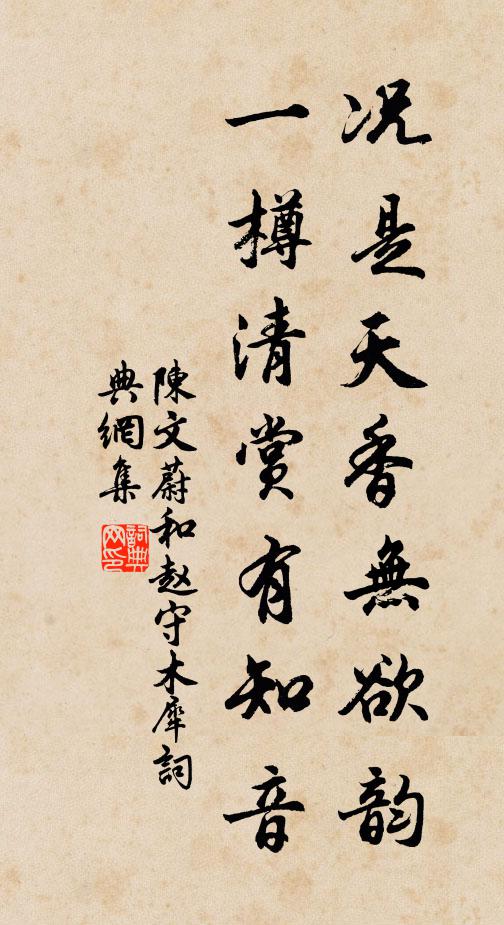 况是天香無欲韵
一樽清賞有知音
陳文蔚和赵守木犀詞
典網集
詞典网印